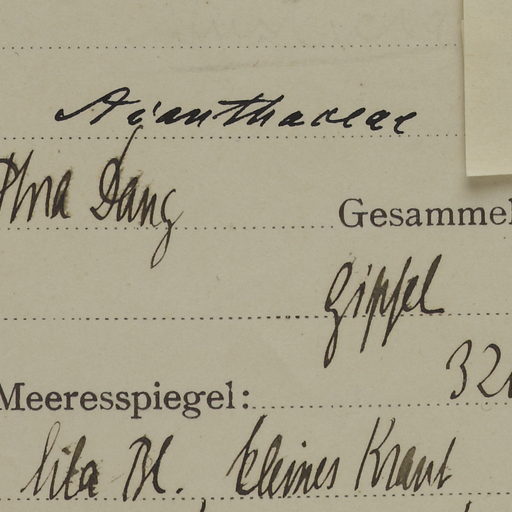 Acanthaceae
Dang
Gesammel
Gipfel
Meeresspiegel: 32
lila Bl., kleines Kraut